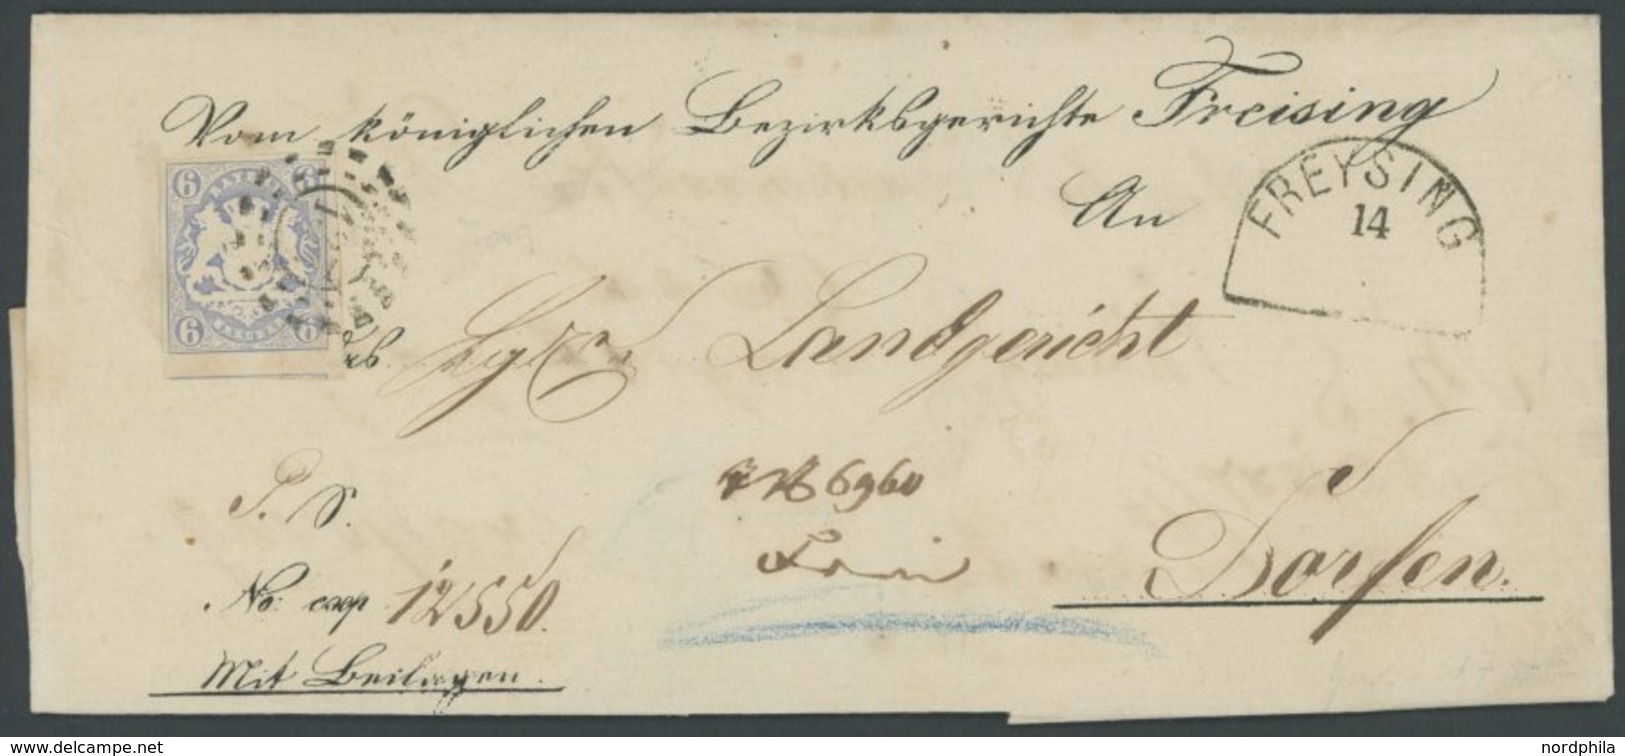 Vom königlichen Bezirksgerichte Freising
An
FREYSING
14
6 BAYERN 6
6 6
Landgericht
P. S.
6960
Dorfen.
No: exp 12550.
Mit Beilagen.
www.delcampe.net
nordphila